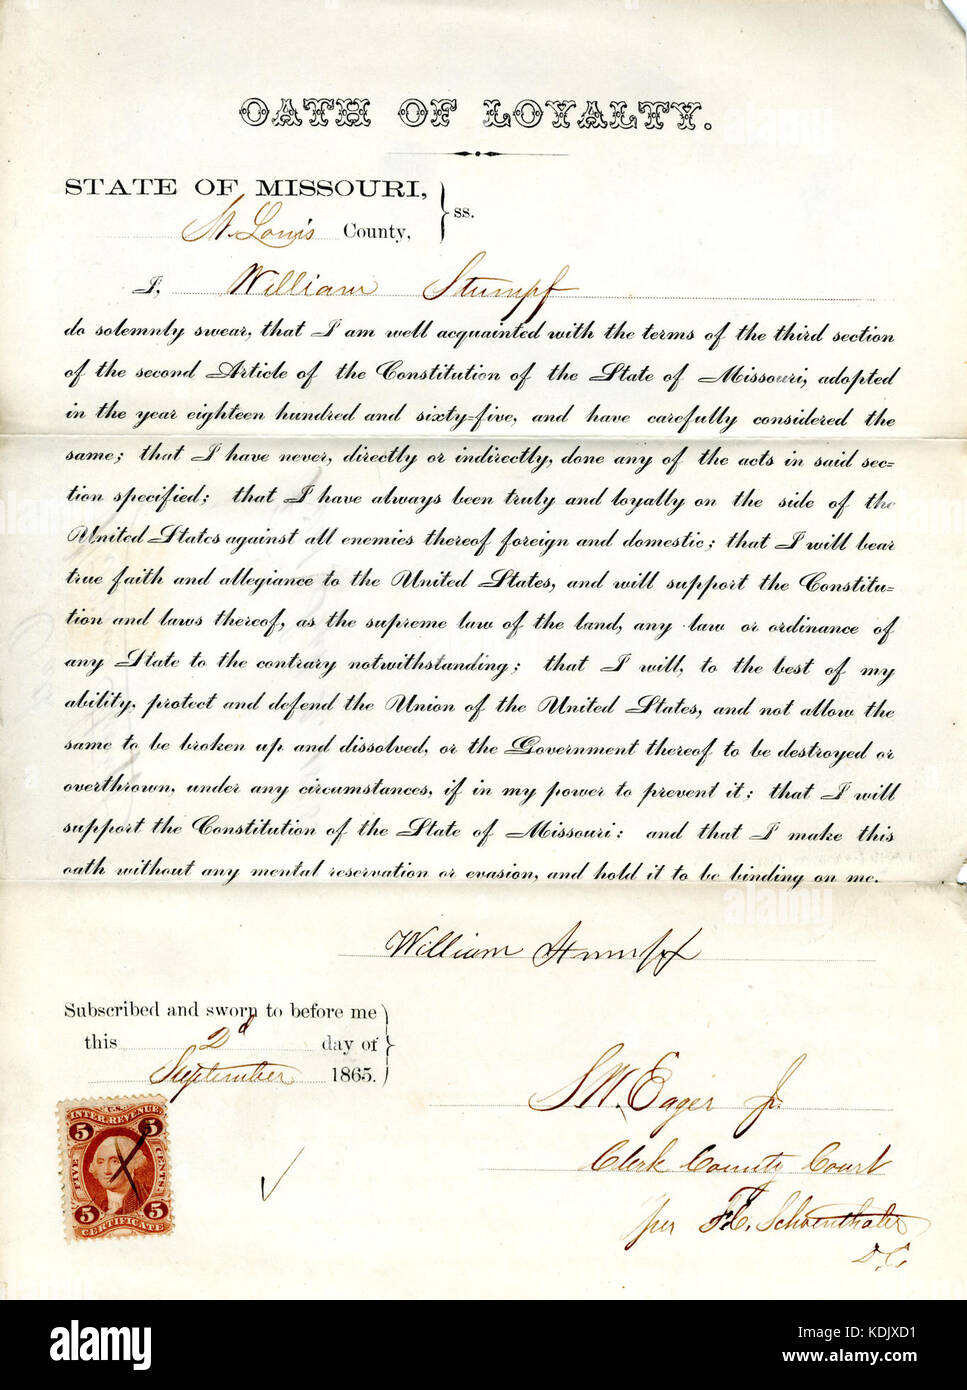 OATH OF LOYALTY.
STATE OF MISSOURI,
ss.
St. Louis County,
I, William Stumpf
do solemnly swear, that I am well acquainted with the terms of the third section
of the second Article of the Constitution of the State of Missouri, adopted
in the year eighteen hundred and sixty-five, and have carefully considered the
same; that I have never, directly or indirectly, done any of the acts in said sec=
tion specified; that I have always been truly and loyally on the side of the
United States against all enemies thereof foreign and domestic; that I will bear
true faith and allegiance to the United States, and will support the Constitu=
tion and laws thereof, as the supreme law of the land, any law or ordinance of
any State to the contrary notwithstanding; that I will, to the best of my
ability, protect and defend the Union of the United States, and not allow the
same to be broken up and dissolved, or the Government thereof to be destroyed or
overthrown, under any circumstances, if in my power to prevent it; that I will
support the Constitution of the State of Missouri: and that I make this
oath without any mental reservation or evasion, and hold it to be binding on me.
William Stumpf
Subscribed and sworn to before me
this 2d day of
September 1865.
S W. Eager Jr.
Clerk County Court
per F. E. Schoenthaler
D. C.
U.S.
INTER. REVENUE
5 5
FIVE CENTS
5 5
CERTIFICATE
alamy
Image ID: KDJXD1
www.alamy.com